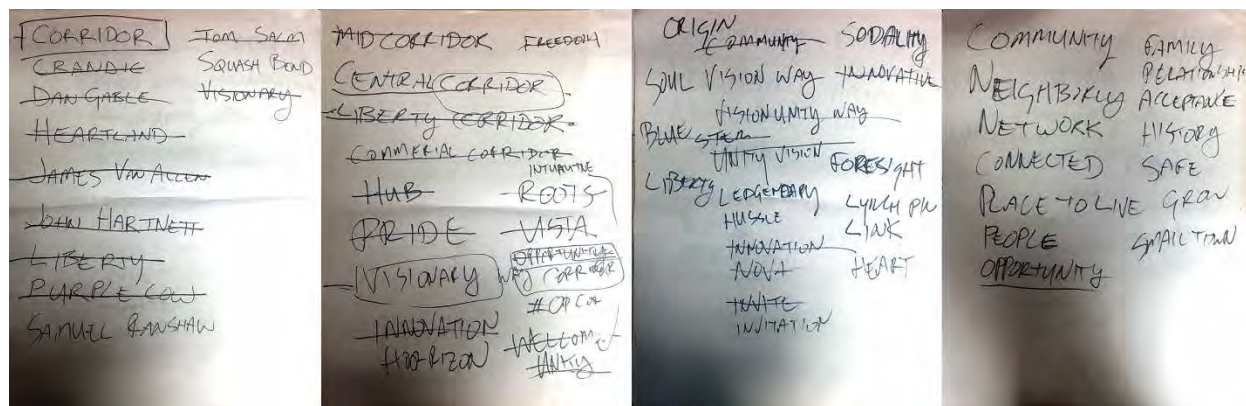 CORRIDOR
CRANDIC
DAN GABLE
HEARTLAND
JAMES VAN ALLEN
JOHN HARTNETT
LIBERTY
PURPLE COW
SAMUEL RANSHAW
TOM SALM
SQUASH BEND
VISIONARY
MID CORRIDOR
FREEDOM
CENTRAL CORRIDOR
LIBERTY CORRIDOR
COMMERIAL CORRIDOR
HUB
PRIDE
VISIONARY WAY
INNOVATION
HORRIZON
ROOTS
VISTA
OPPORTUNITY
CORRIDOR
#OPCOR
WELCOM
UNITY
ORIGIN
COMMUNITY
SOUL VISION WAY
VISION UNITY WAY
BLUE STEM
UNITY VISION
LIBERTY
LEDGENDARY
HUSSLE
INNOVATION
NOVA
INVITE
INVITATION
SODALITY
INNOVATIVE
FORESIGHT
LYNCH PIN
LINK
HEART
COMMUNITY
NEIGHBORLY
NETWORK
CONNECTED
PLACE TO LIVE
PEOPLE
OPPORTUNITY
FAMILY
RELATIONSHIPS
ACCEPTANCE
HISTORY
SAFE
GROW
SMALL TOWN